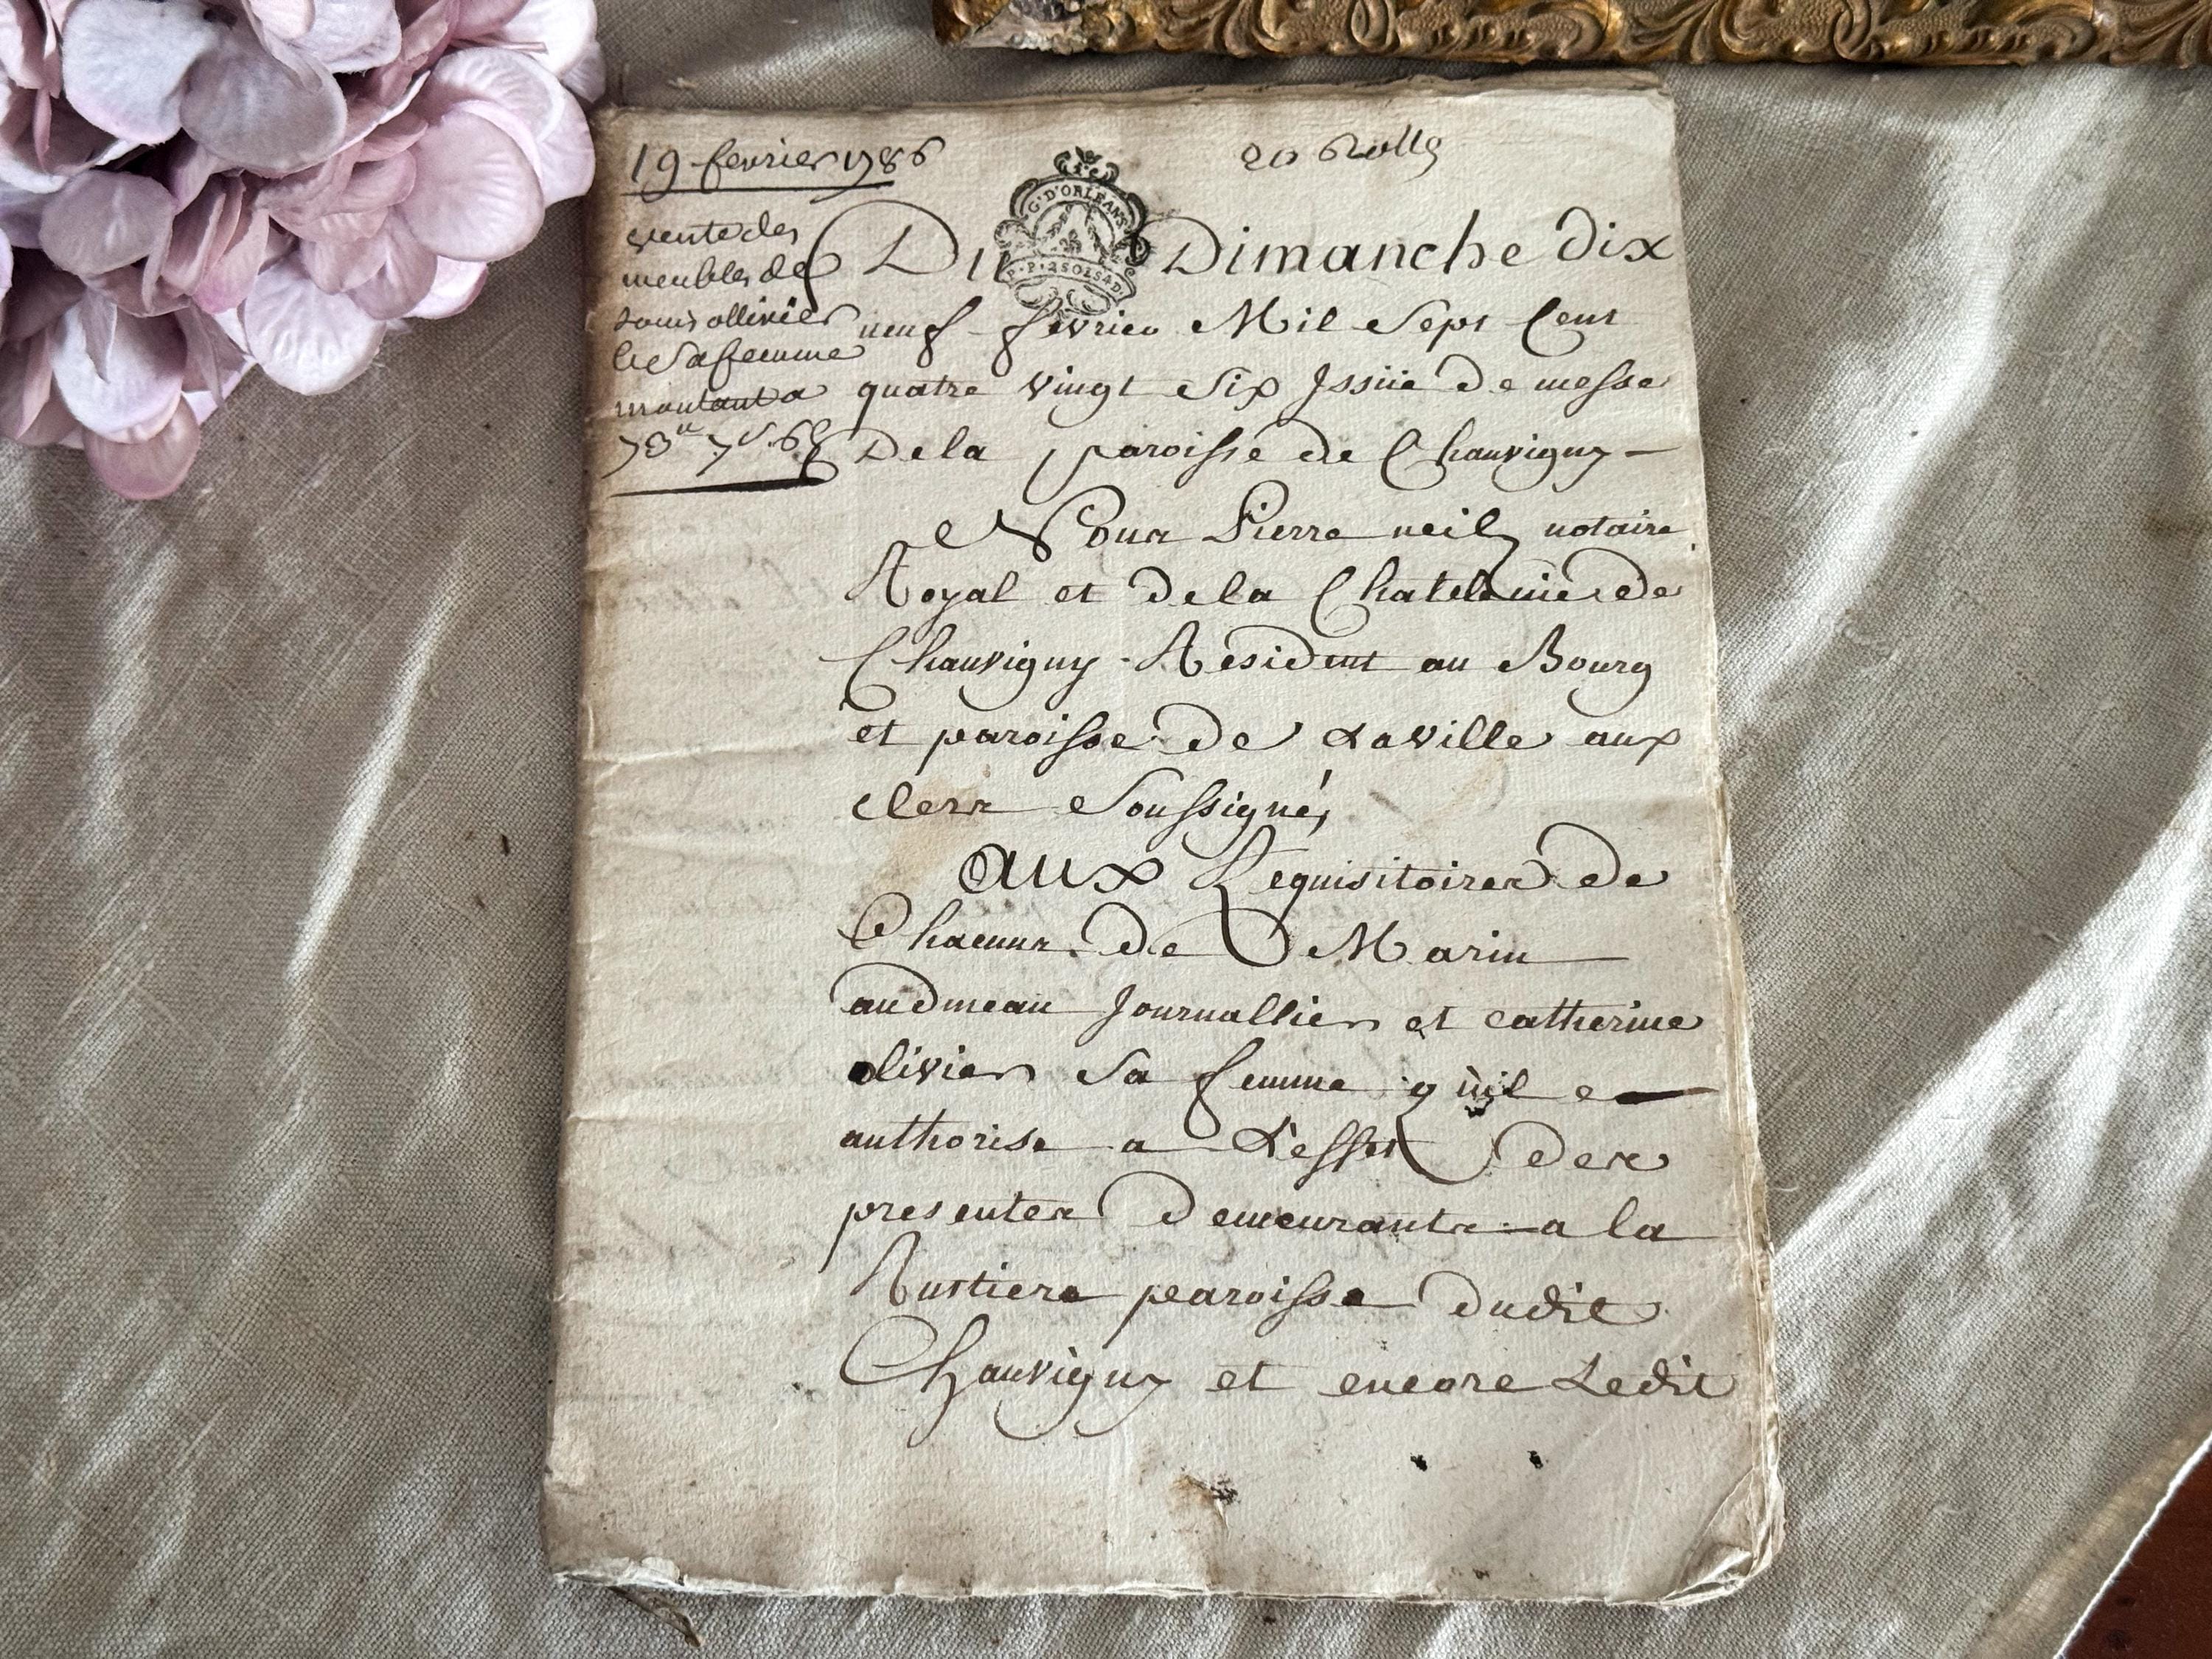 19 fevrier 1786
20 Rolls
G. D'ORLEANS
P.P. 2 SOLS 4 D.
vente des
meubles de
Louis ollivier
et Sa femme
montant a
78 7 6
Du Dimanche dix
neuf fevrier Mil Sept Cent
quatre vingt Six Issüe de messe
De la paroisse de Chauvigny
Nous Pierre neil notaire
Royal et de la Chatelenie de
Chauvigny Résident au Bourg
et paroisse de La ville aux
clers Soussigné,
aux Requisitoires de
Chacuns de Marin
audmeau Journallier et catherine
olivier Sa femme qu'il
authorise a L'effet des
presentes Demeurants a la
Rustiere paroisse dudit
Chauvigny et encore Ledit